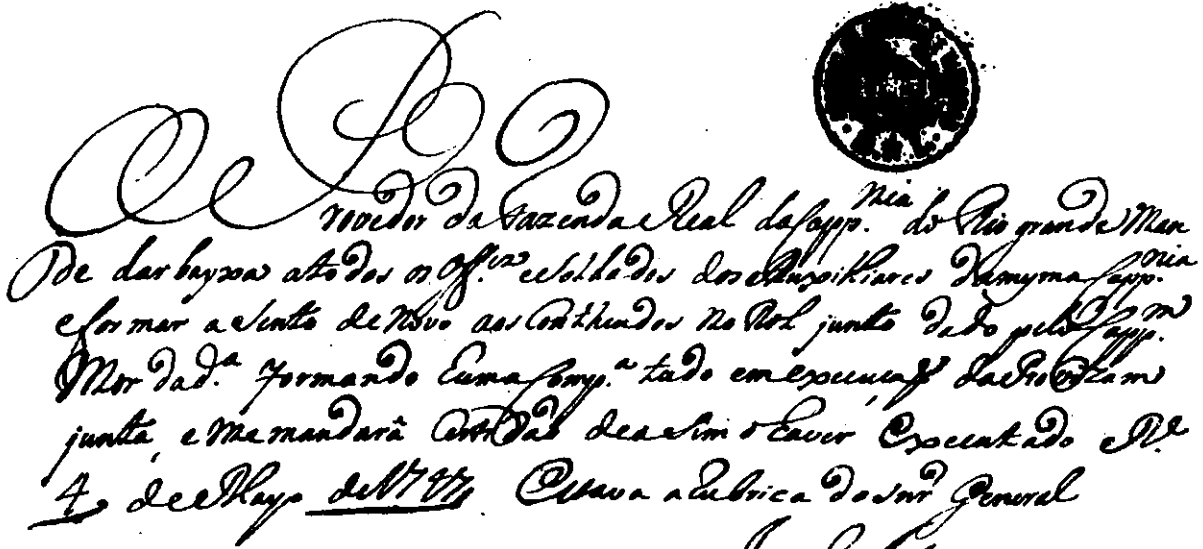 O Provedor da Fazenda Real da Capp.nia do Rio grande Man
de dar bayxa a todos os Off.es e Soldados dos Auxilliares da mesma Capp.nia
e formar asento de Novo aos Contheudos no Rol junto dado pelo Capp.m
Mor da d.a formando huma Comp.a tudo em execução da
junta, e me mandarâ Certidaõ de asim o haver Executado R.e
4 de Mayo de 1747 Estava a Rubrica do Snr General